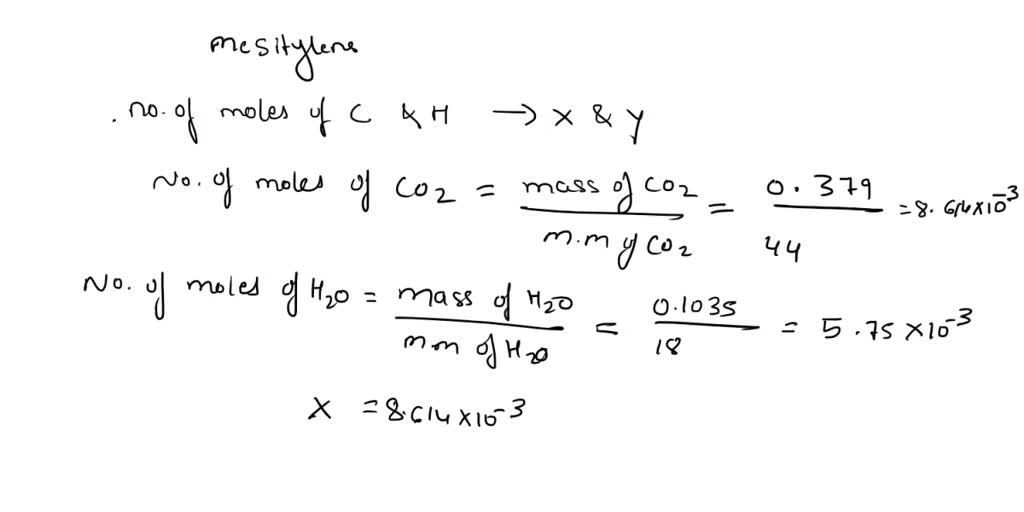 mesitylene
. no. of moles of C & H → X & Y
No. of moles of CO2 = mass of CO2 / m.m of CO2 = 0.379 / 44 = 8.614×10^-3
No. of moles of H2O = mass of H2O / mm of H2O = 0.1035 / 18 = 5.75×10^-3
X = 8.614×10^-3